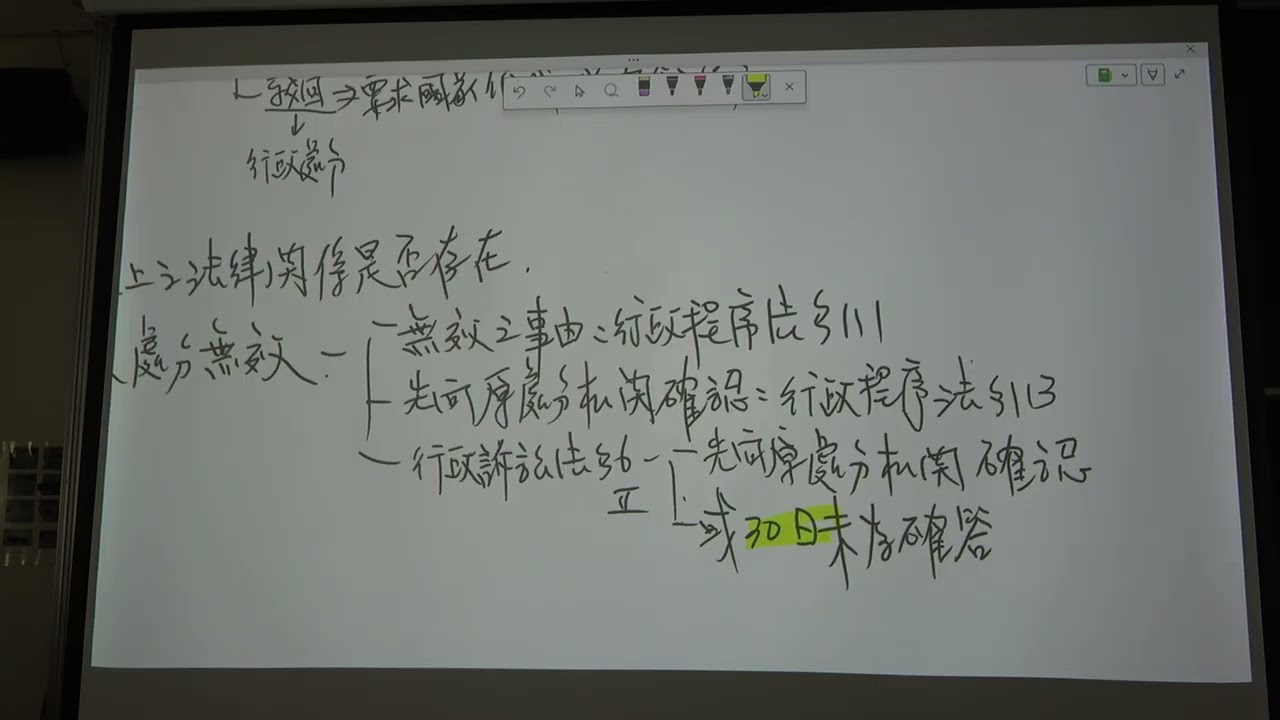 駁回→要求國家
↓
行政處分
上之法律関係是否存在.
處分無效:-
-無效之事由:行政程序法§111
-先向原處分机関確認:行政程序法§113
-行政訴訟法§6 II
-先向原處分机関確認
-或30日未為確答